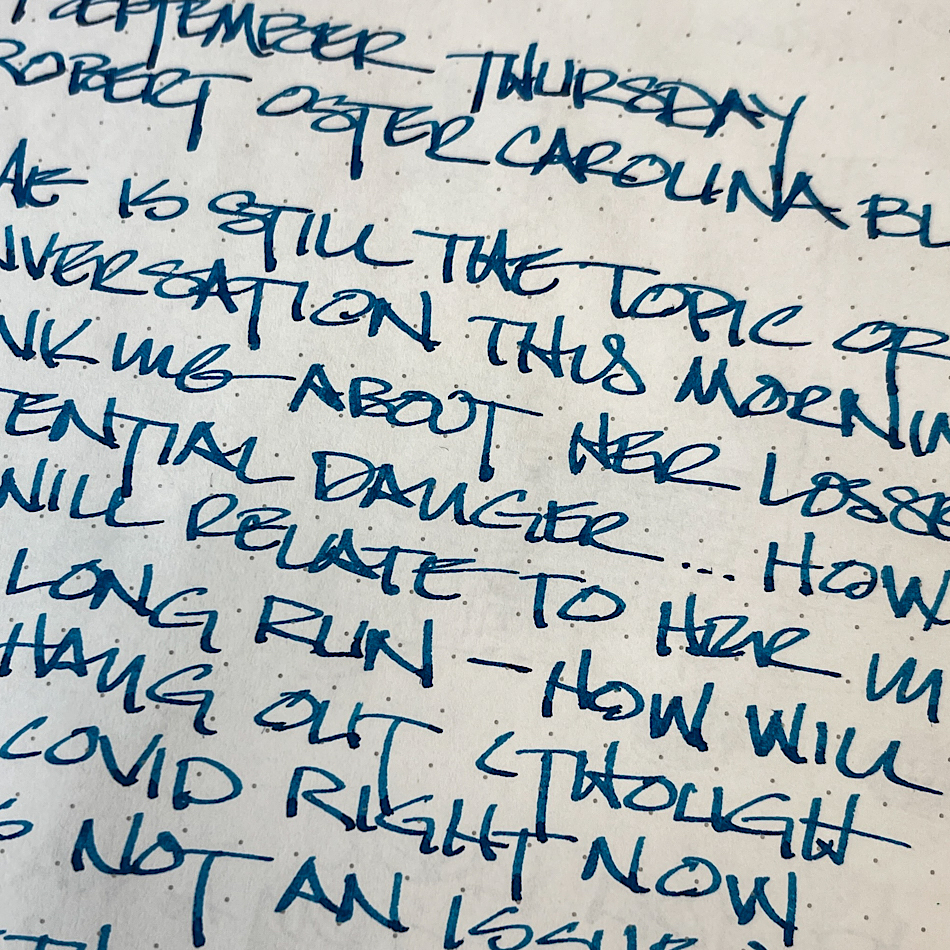 SEPTEMBER THURSDAY
ROBERT OSTER CAROLINA BL
IS STILL THE TOPIC OF
NVERSATION THIS MORNIN
NKING ABOUT HER LOSSE
TENTIAL DANGER ... HOW
WILL RELATE TO HER IN
LONG RUN - HOW WILL
HANG OUT (THOUGH
COVID RIGHT NOW
S NOT AN ISSUE